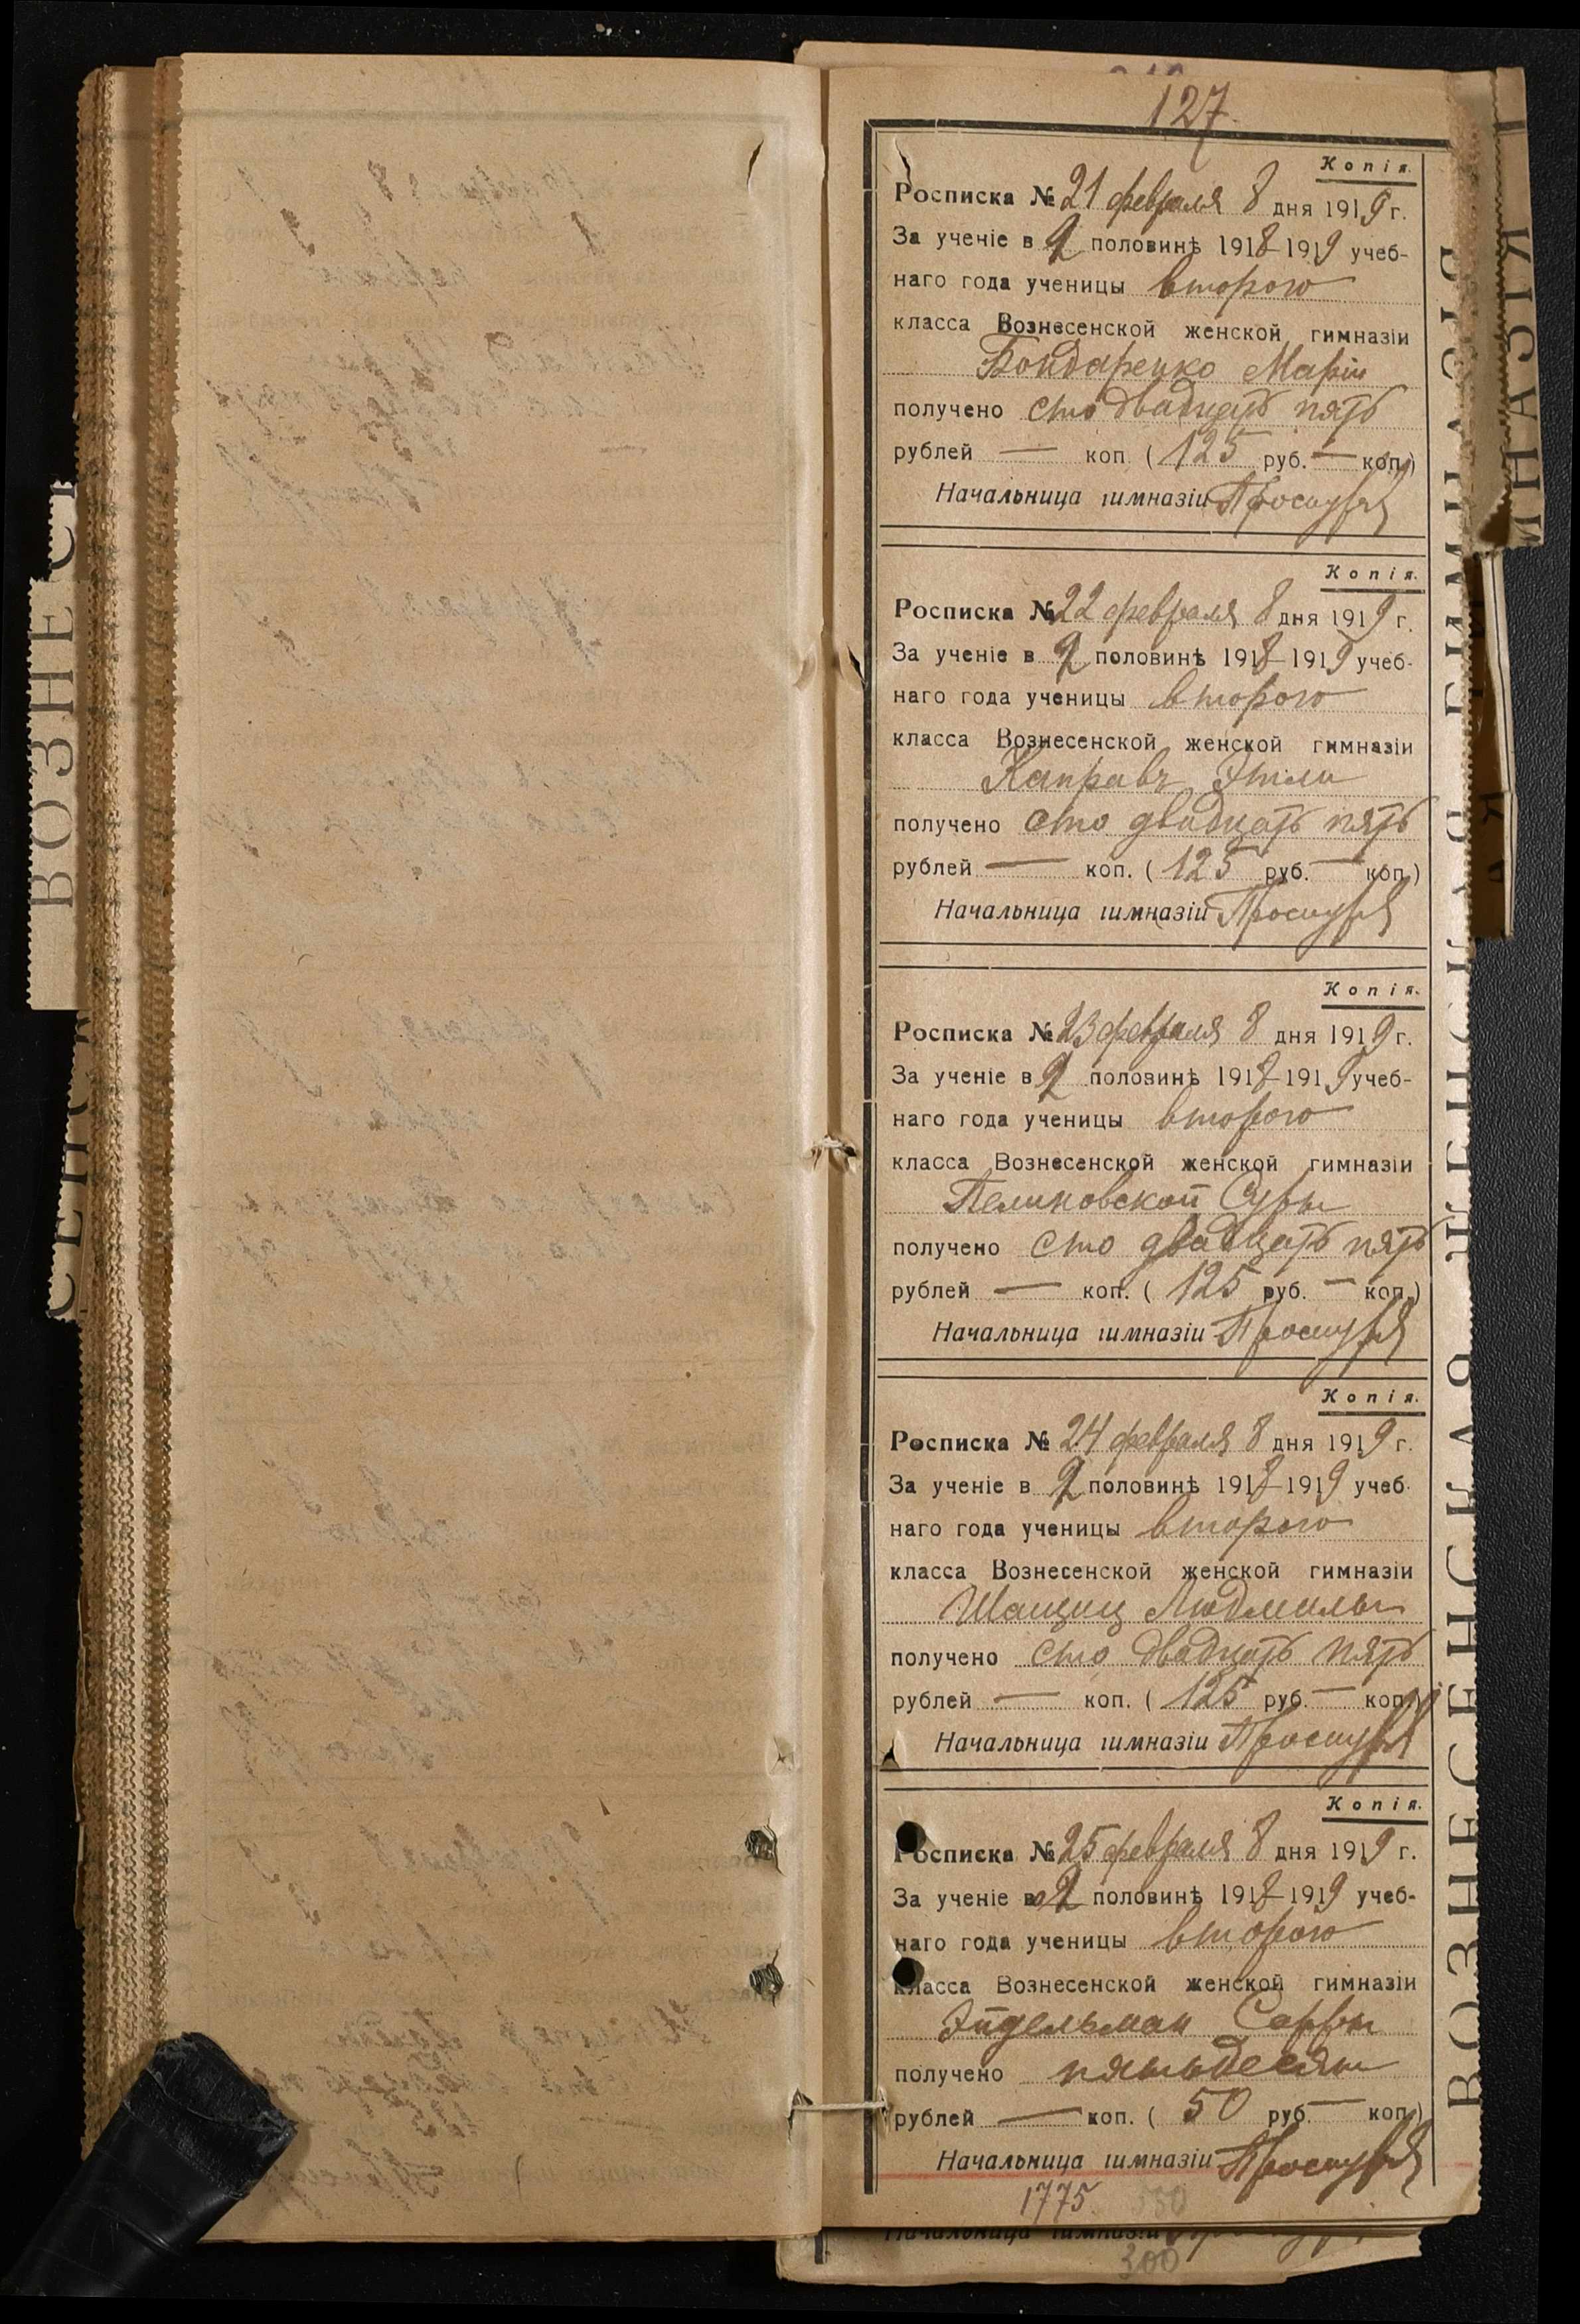 127.
Копія.
Росписка № 21 февраля 8 дня 1919 г.
За ученіе в 2 половинѣ 1918-1919 учеб-
наго года ученицы второго
класса Вознесенской женской гимназіи
Бондаренко Маріи
получено сто двадцать пять
рублей — коп. (125 руб. — коп.)
Начальница гимназіи
Копія.
Росписка № 22 февраля 8 дня 1919 г.
За ученіе в 2 половинѣ 1918-1919 учеб-
наго года ученицы второго
класса Вознесенской женской гимназіи
Каправъ Этли
получено сто двадцать пять
рублей — коп. (125 руб. — коп.)
Начальница гимназіи
Копія.
Росписка № 23 февраля 8 дня 1919 г.
За ученіе в 2 половинѣ 1918-1919 учеб-
наго года ученицы второго
класса Вознесенской женской гимназіи
Суры
получено сто двадцать пять
рублей — коп. (125 руб. — коп.)
Начальница гимназіи
Копія.
Росписка № 24 февраля 8 дня 1919 г.
За ученіе в 2 половинѣ 1918-1919 учеб
наго года ученицы второго
класса Вознесенской женской гимназіи
Людмилы
получено сто двадцать пять
рублей — коп. (125 руб. — коп.)
Начальница гимназіи
Копія.
Росписка № 25 февраля 8 дня 1919 г.
За ученіе в 2 половинѣ 1918-1919 учеб-
наго года ученицы второго
класса Вознесенской женской гимназіи
Эйдельман Сарры
получено пятьдесят
рублей — коп. (50 руб. — коп.)
Начальница гимназіи
1775. 550
Начальница гимназіи
300
ВОЗНЕСЕНСКАЯ ЖЕНСКАЯ ГИМНАЗІЯ
ВОЗНЕС